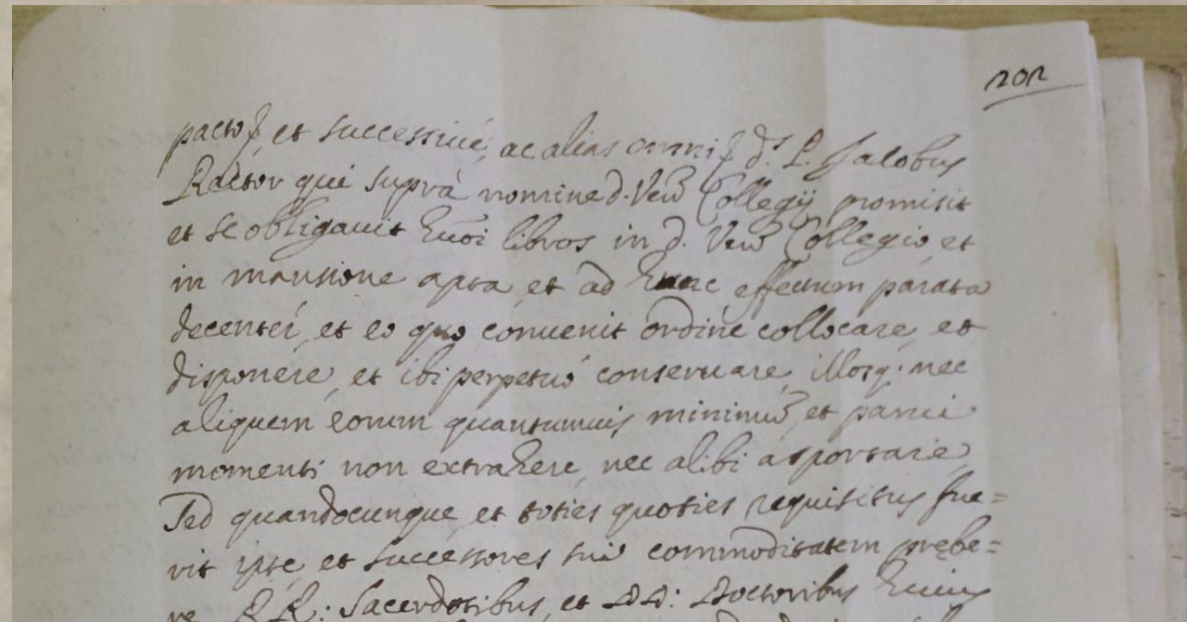 202
pacto, et successiuè, ac alias omni d.s P. Jacobus
Rector qui suprà nomine d. Ven Collegij promisit
et se obligauit huõi libros in d. Ven Collegio et
in mansione apta et ad hunc effectum parata
decenter, et eo quo convenit ordine collocare, et
disponere, et ibi perpetuò conseruare, illosq. nec
aliquem eorum quantumuis minimũ, et parui
momenti non extrahere, nec alibi asportare,
Sed quandocunque, et toties quoties requisitus fue=
rit ipse, et successores sui commoditatem prębe=
re RR: Sacerdotibus, et DD: Doctoribus huius